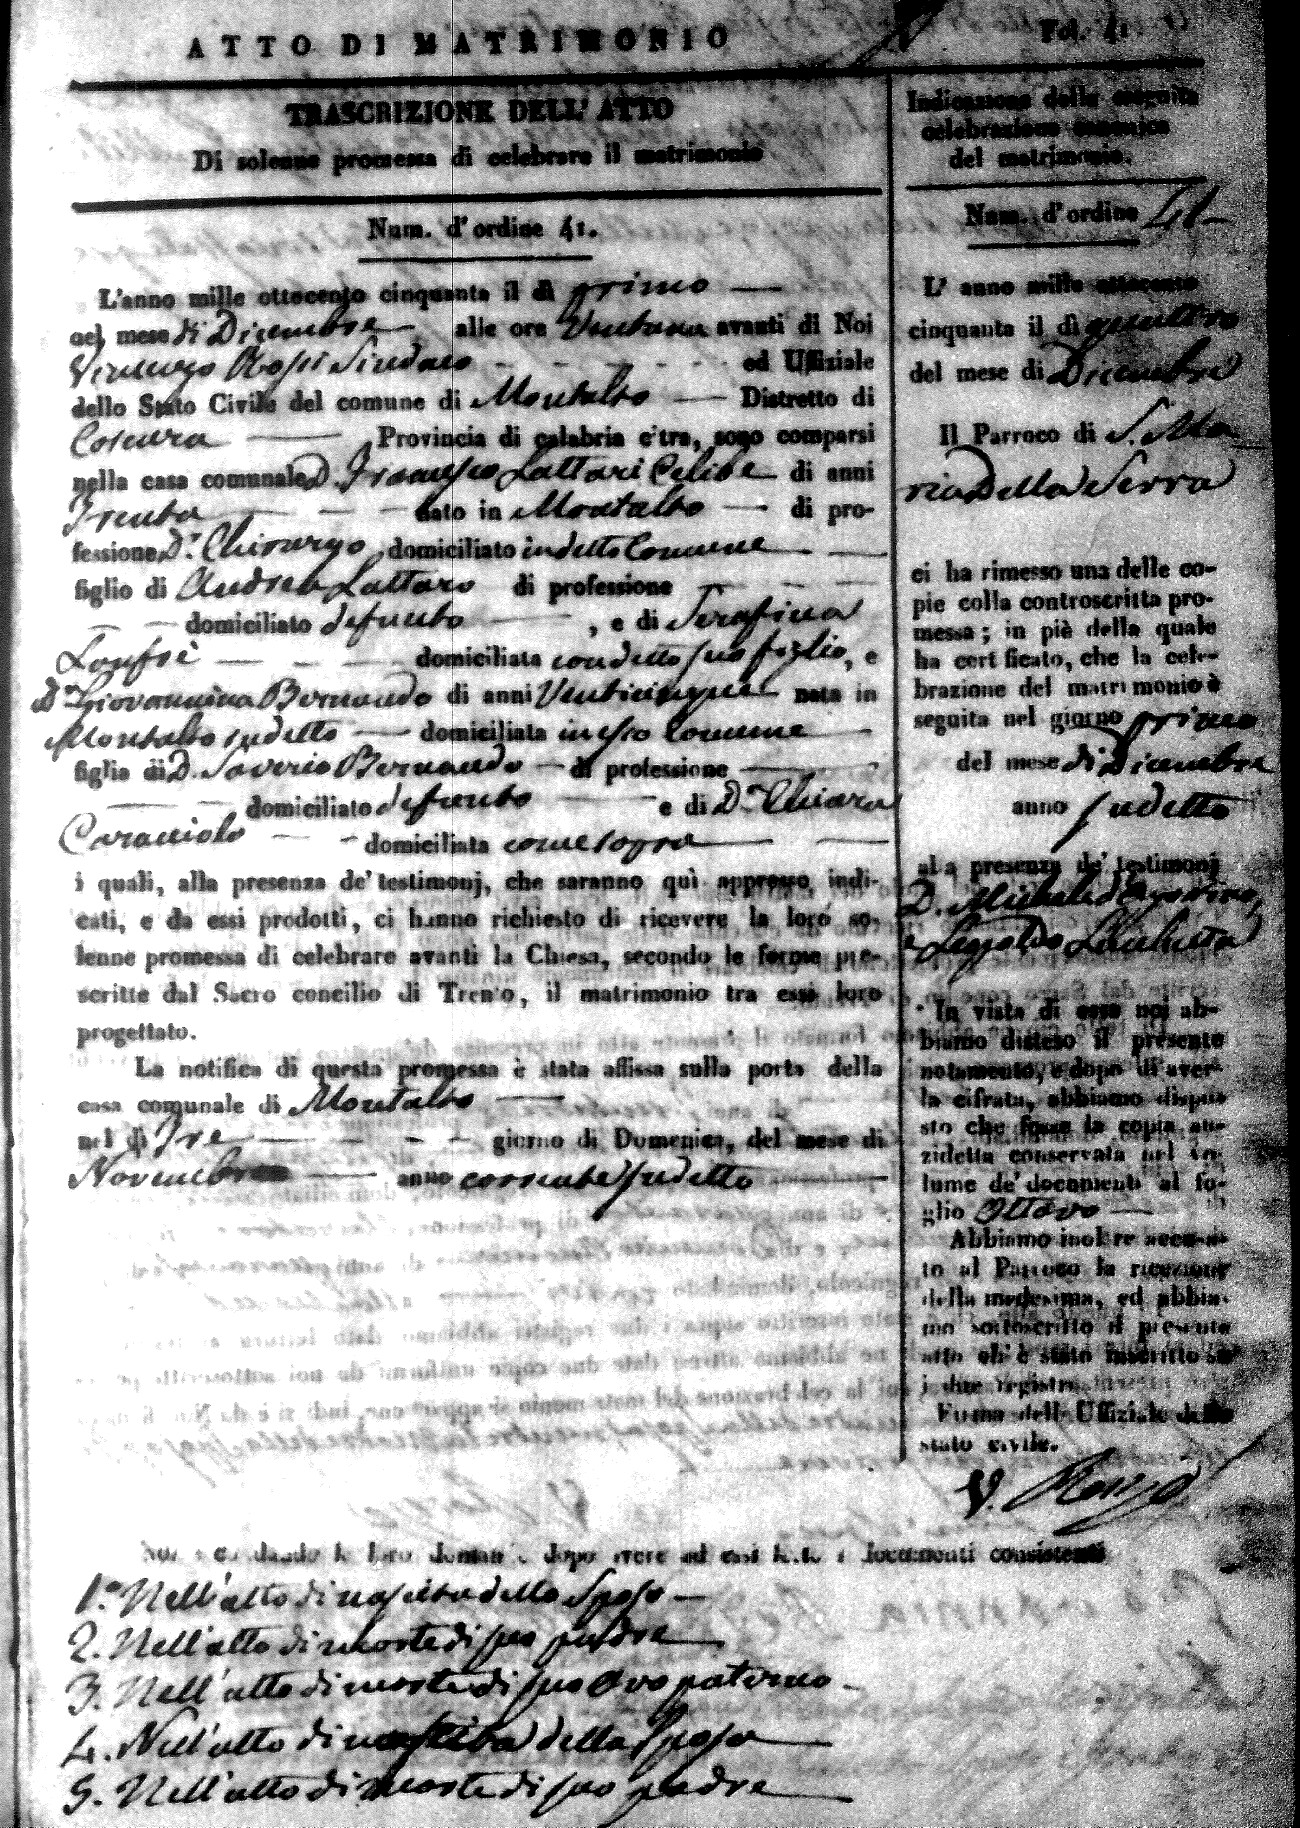 ATTO DI MATRIMONIO
Fol. 41
TRASCRIZIONE DELL' ATTO
Di solenne promessa di celebrare il matrimonio
Num. d'ordine 41.
L'anno mille ottocento cinquanta il dì primo
nel mese di Dicembre alle ore avanti di Noi
Sindaco ed Uffiziale
dello Stato Civile del comune di Montalto Distretto di
Cosenza Provincia di calabria citra, sono comparsi
nella casa comunale D. Francesco Lattari Celibe di anni
Trenta nato in Montalto di pro-
fessione Dr. Chirurgo domiciliato in detto Comune
figlio di Andrea Lattaro di professione
domiciliato defunto , e di Serafina
domiciliata con detto suo figlio, e
Da. Giovannina Bernaudo di anni Venticinque nata in
Montalto sudetto domiciliata in esso Comune
figlia di D. Saverio Bernaudo di professione
domiciliato defunto e di Da. Chiara
Caracciolo domiciliata come sopra
i quali, alla presenza de' testimonj, che saranno quì appresso indi-
cati, e da essi prodotti, ci hanno richiesto di ricevere la loro so-
lenne promessa di celebrare avanti la Chiesa, secondo le forme pre-
scritte dal Sacro concilio di Trento, il matrimonio tra essi loro
progettato.
La notifica di questa promessa è stata affissa sulla porta della
casa comunale di Montalto
nel dì Tre giorno di Domenica, del mese di
Novembre anno corrente sudetto
Indicazione della seguita
celebrazione canonica
del matrimonio.
Num. d'ordine 41
L' anno mille ottocento
cinquanta il dì quattro
del mese di Dicembre
Il Parroco di S. Ma
ria della Serra
ci ha rimesso una delle co-
pie colla controscritta pro-
messa; in piè della quale
ha certificato, che la cele-
brazione del matrimonio è
seguita nel giorno primo
del mese di Dicembre
anno sudetto
alla presenza de' testimonj
D. Michele
e Leopoldo
In vista di essa noi ab-
biamo disteso il presente
notamento, e dopo di aver-
la cifrata, abbiamo dispo-
sto che fosse la copia an-
zidetta conservata nel vo-
lume de' documenti al fo-
glio Ottavo
Abbiamo inoltre accusa-
to al Parroco la ricezione
della medesima, ed abbia-
mo sottoscritto il presente
atto ch' è stato inscritto su'
i due registri
Firma dell' Uffiziale dello
stato civile.
V.
Noi secondando le loro domande dopo avere ad essi letto i documenti consistenti
1.° Nell'atto di nascita dello Sposo
2. Nell'atto di morte di suo padre
3. Nell'atto di morte di suo avo paterno
4. Nell'atto di nascita della Sposa
5. Nell'atto di morte di suo padre